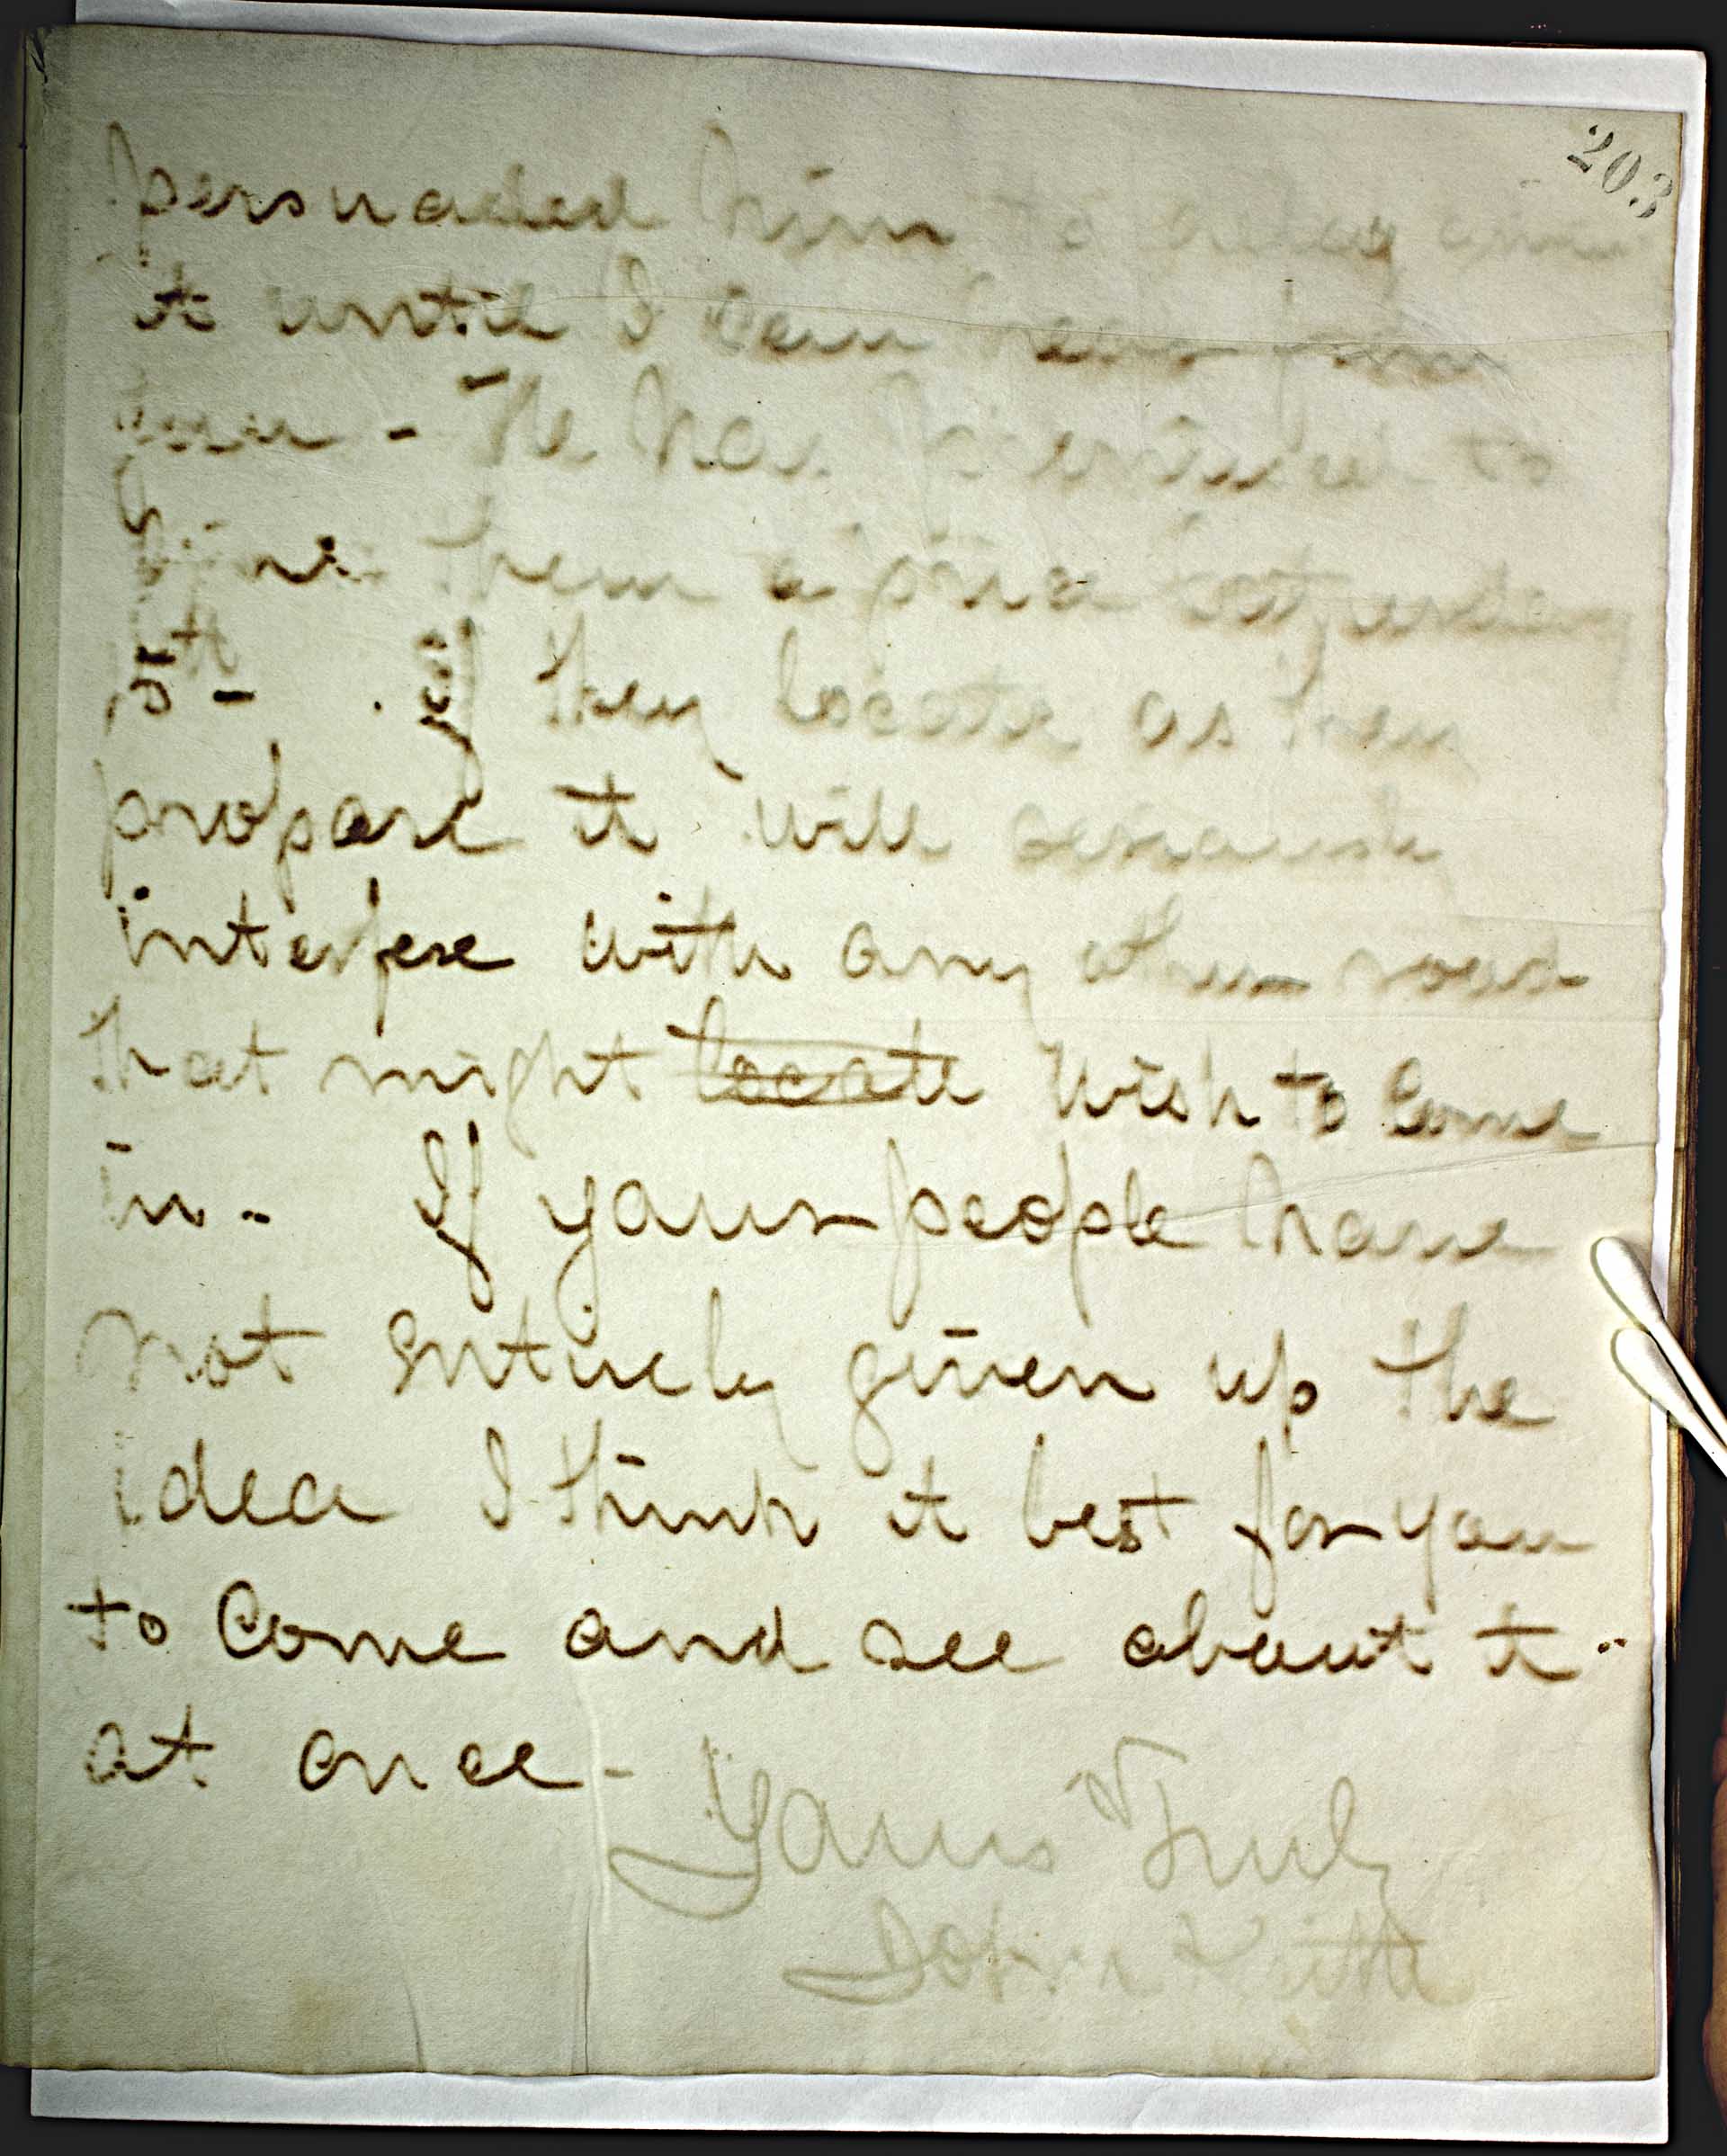 203
persuaded him to delay
it until I can hear from
you - He has promised to
give them a price
5th - . if they locate as they
propose it will seriously
interfere with any other road
that might locate wish to Come
in - If your people have
not entirely given up the
idea I think it best for you
to Come and see about it
at once - Yours Truly
John